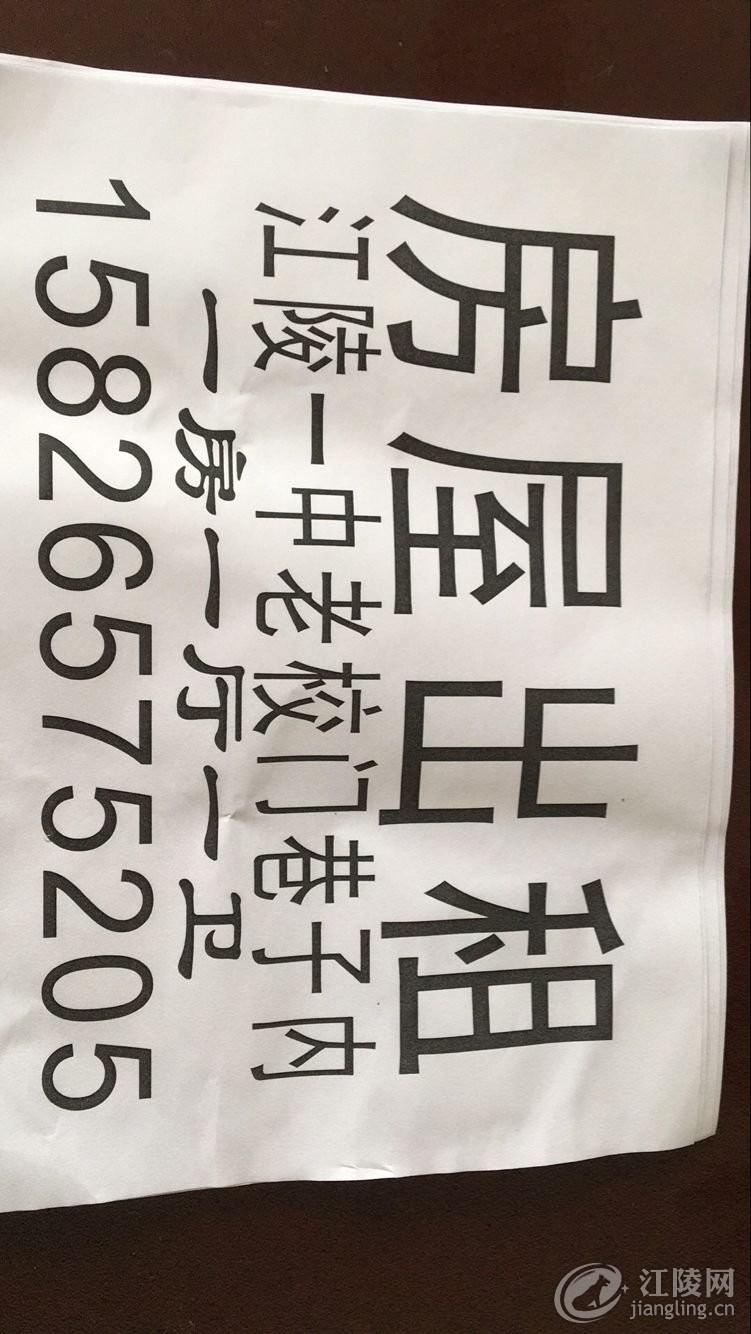 房屋出租
江陵一中老校门巷子内
一房一厅一卫
15826575205
江陵网
jiangling.cn